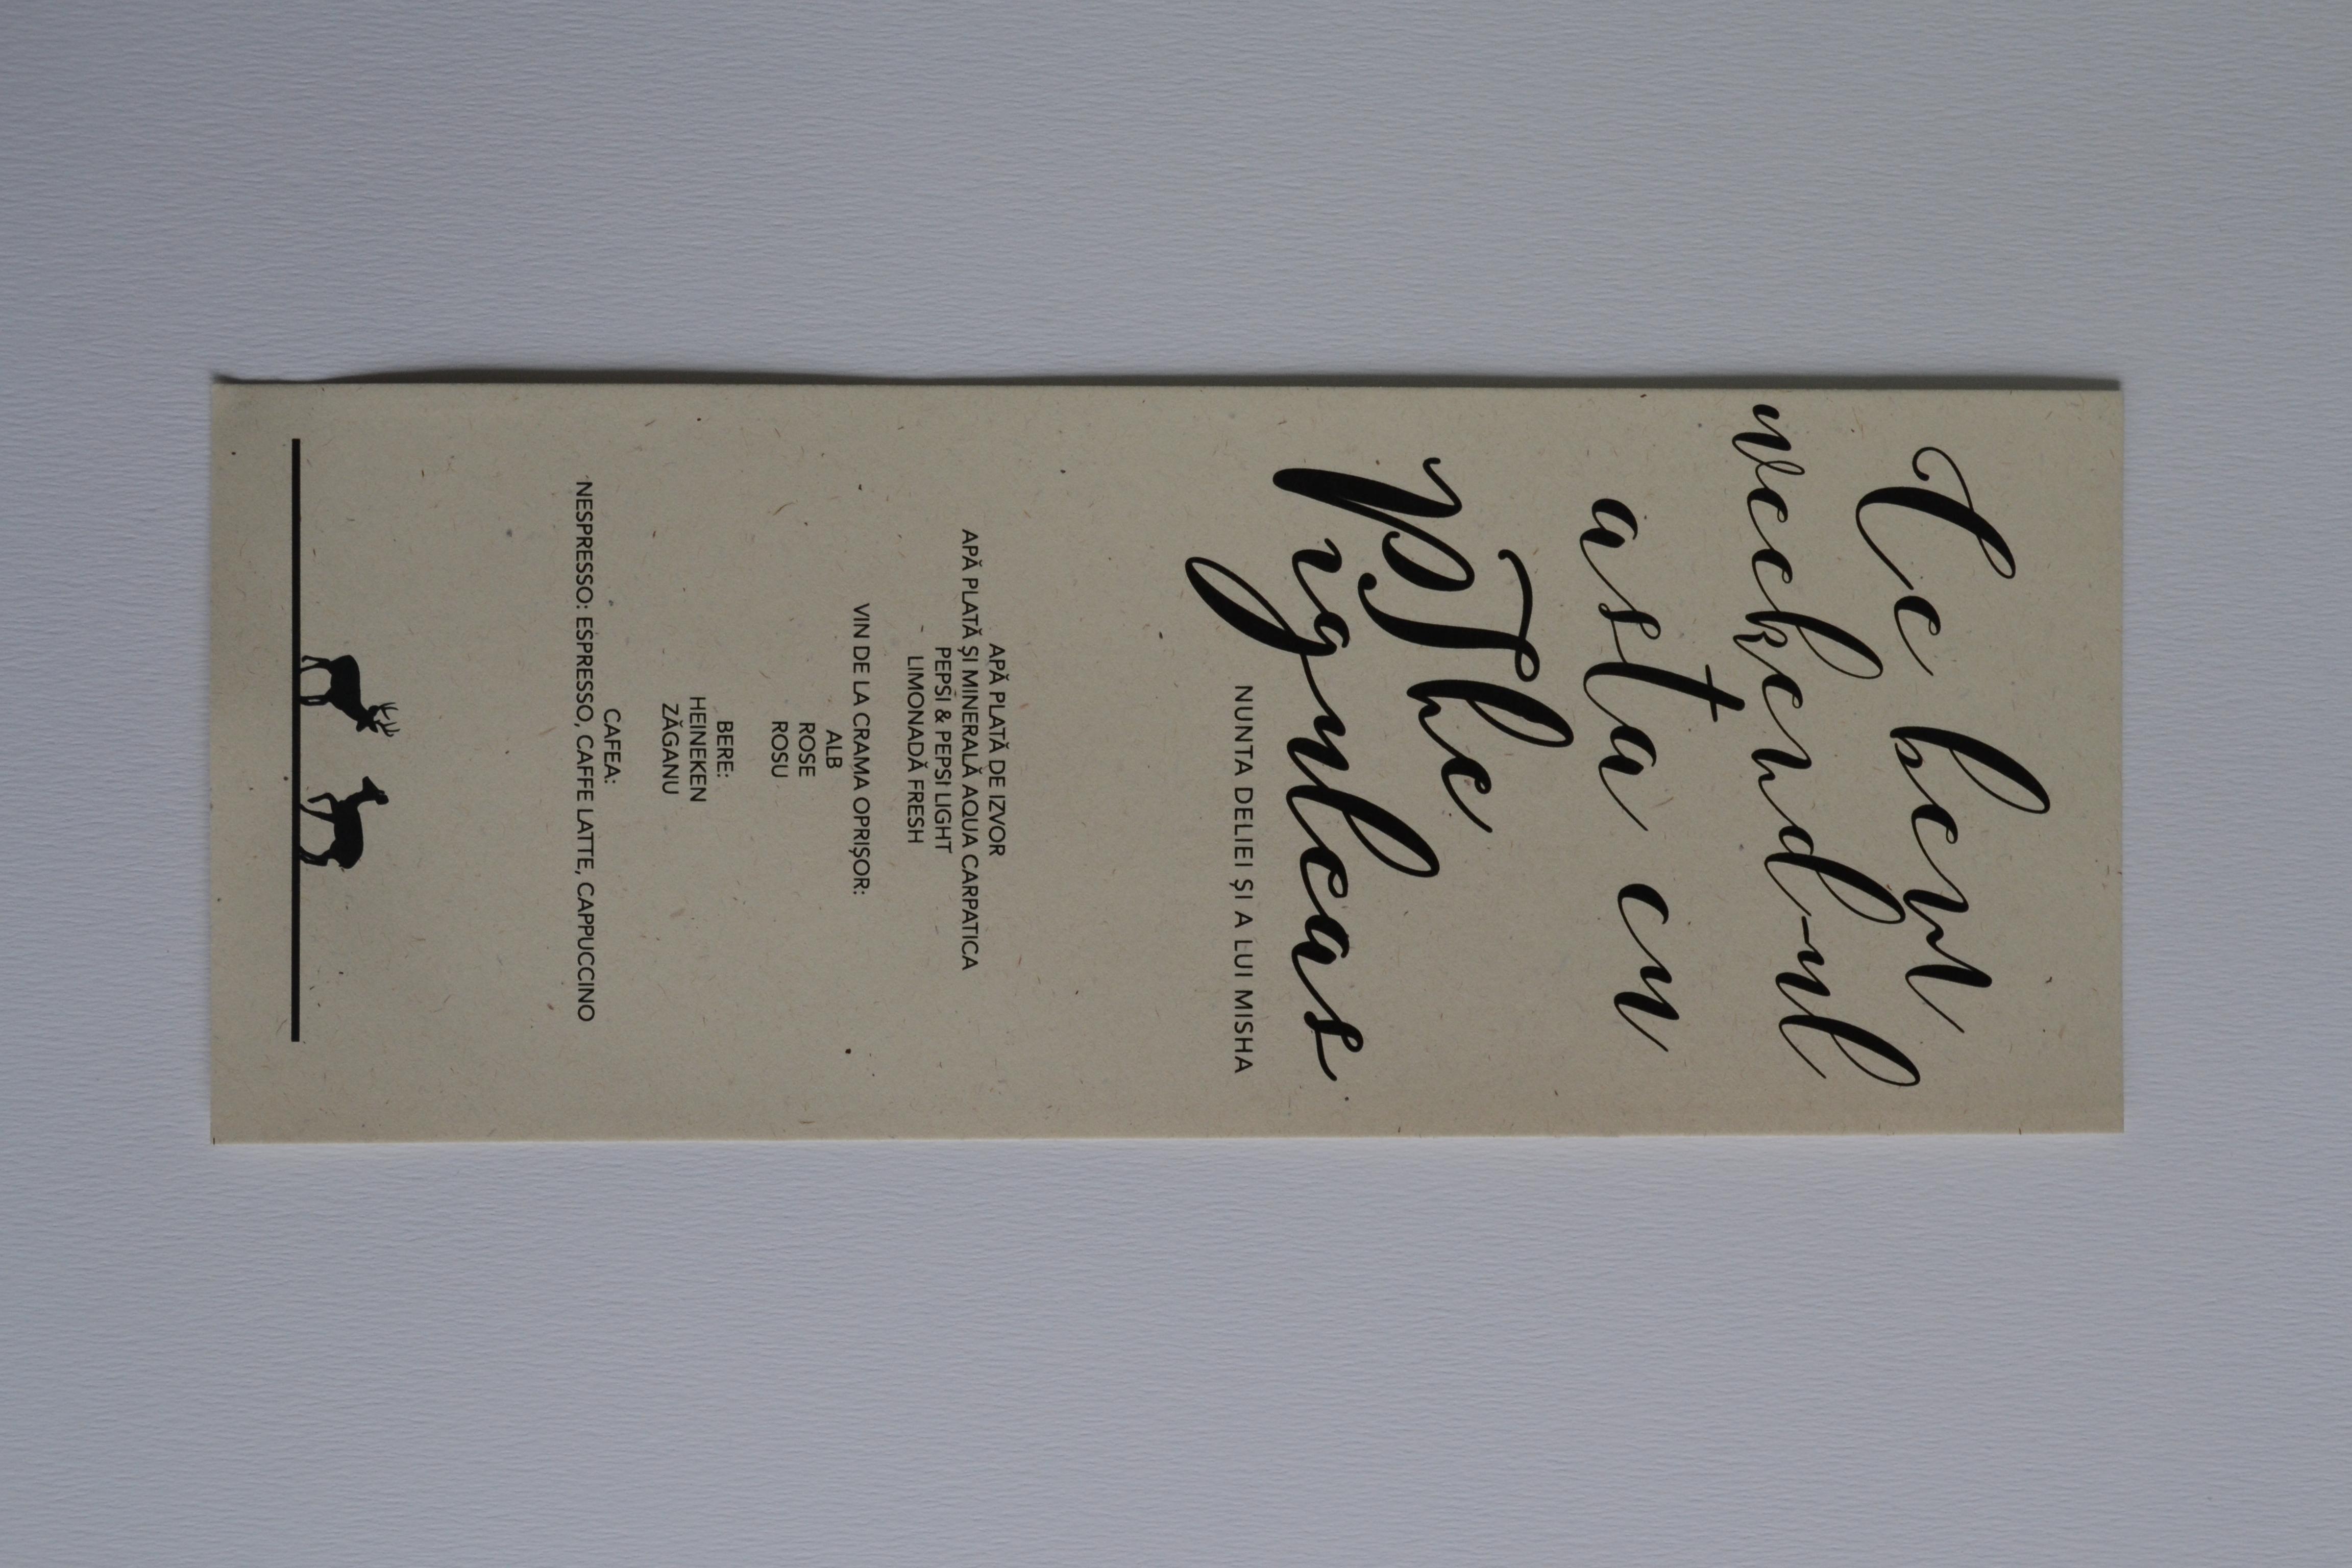 Ce bem
weekend-ul
asta en
The
Pignleas
NUNTA DELIEI ȘI A LUI MISHA
APĂ PLATĂ DE IZVOR
APĂ PLATĂ ȘI MINERALĂ AQUA CARPATICA
PEPSI & PEPSI LIGHT
LIMONADĂ FRESH
VIN DE LA CRAMA OPRIȘOR:
ALB
ROSE
ROSU
BERE:
HEINEKEN
ZĂGANU
CAFEA:
NESPRESSO: ESPRESSO, CAFFE LATTE, CAPPUCCINO